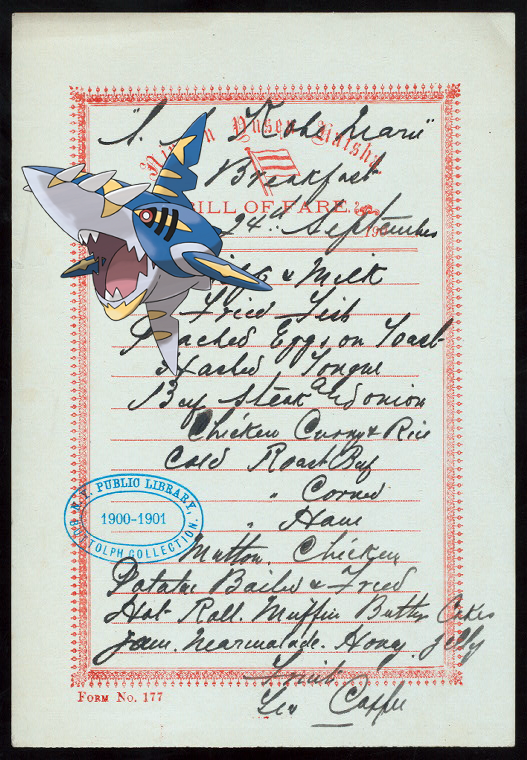 "S. S. Kobe Maru"
Nippon Yusen Kaisha
Breakfast
BILL OF FARE.
24th September 190
& Milk
Fried Fish
Poached Eggs on Toast
Hashed Tongue
Beef Steak and onion
Chicken Curry & Rice
Cold Roast Beef
" Corned
" Ham
Mutton, Chicken
Potatoe Boiled & Fried
Hot Roll. Muffin Butter Cakes
Jam. Marmalade. Honey. Jelly
Fruit
Tea Coffee
N.Y. PUBLIC LIBRARY,
1900-1901
BUTTOLPH COLLECTION.
FORM No. 177